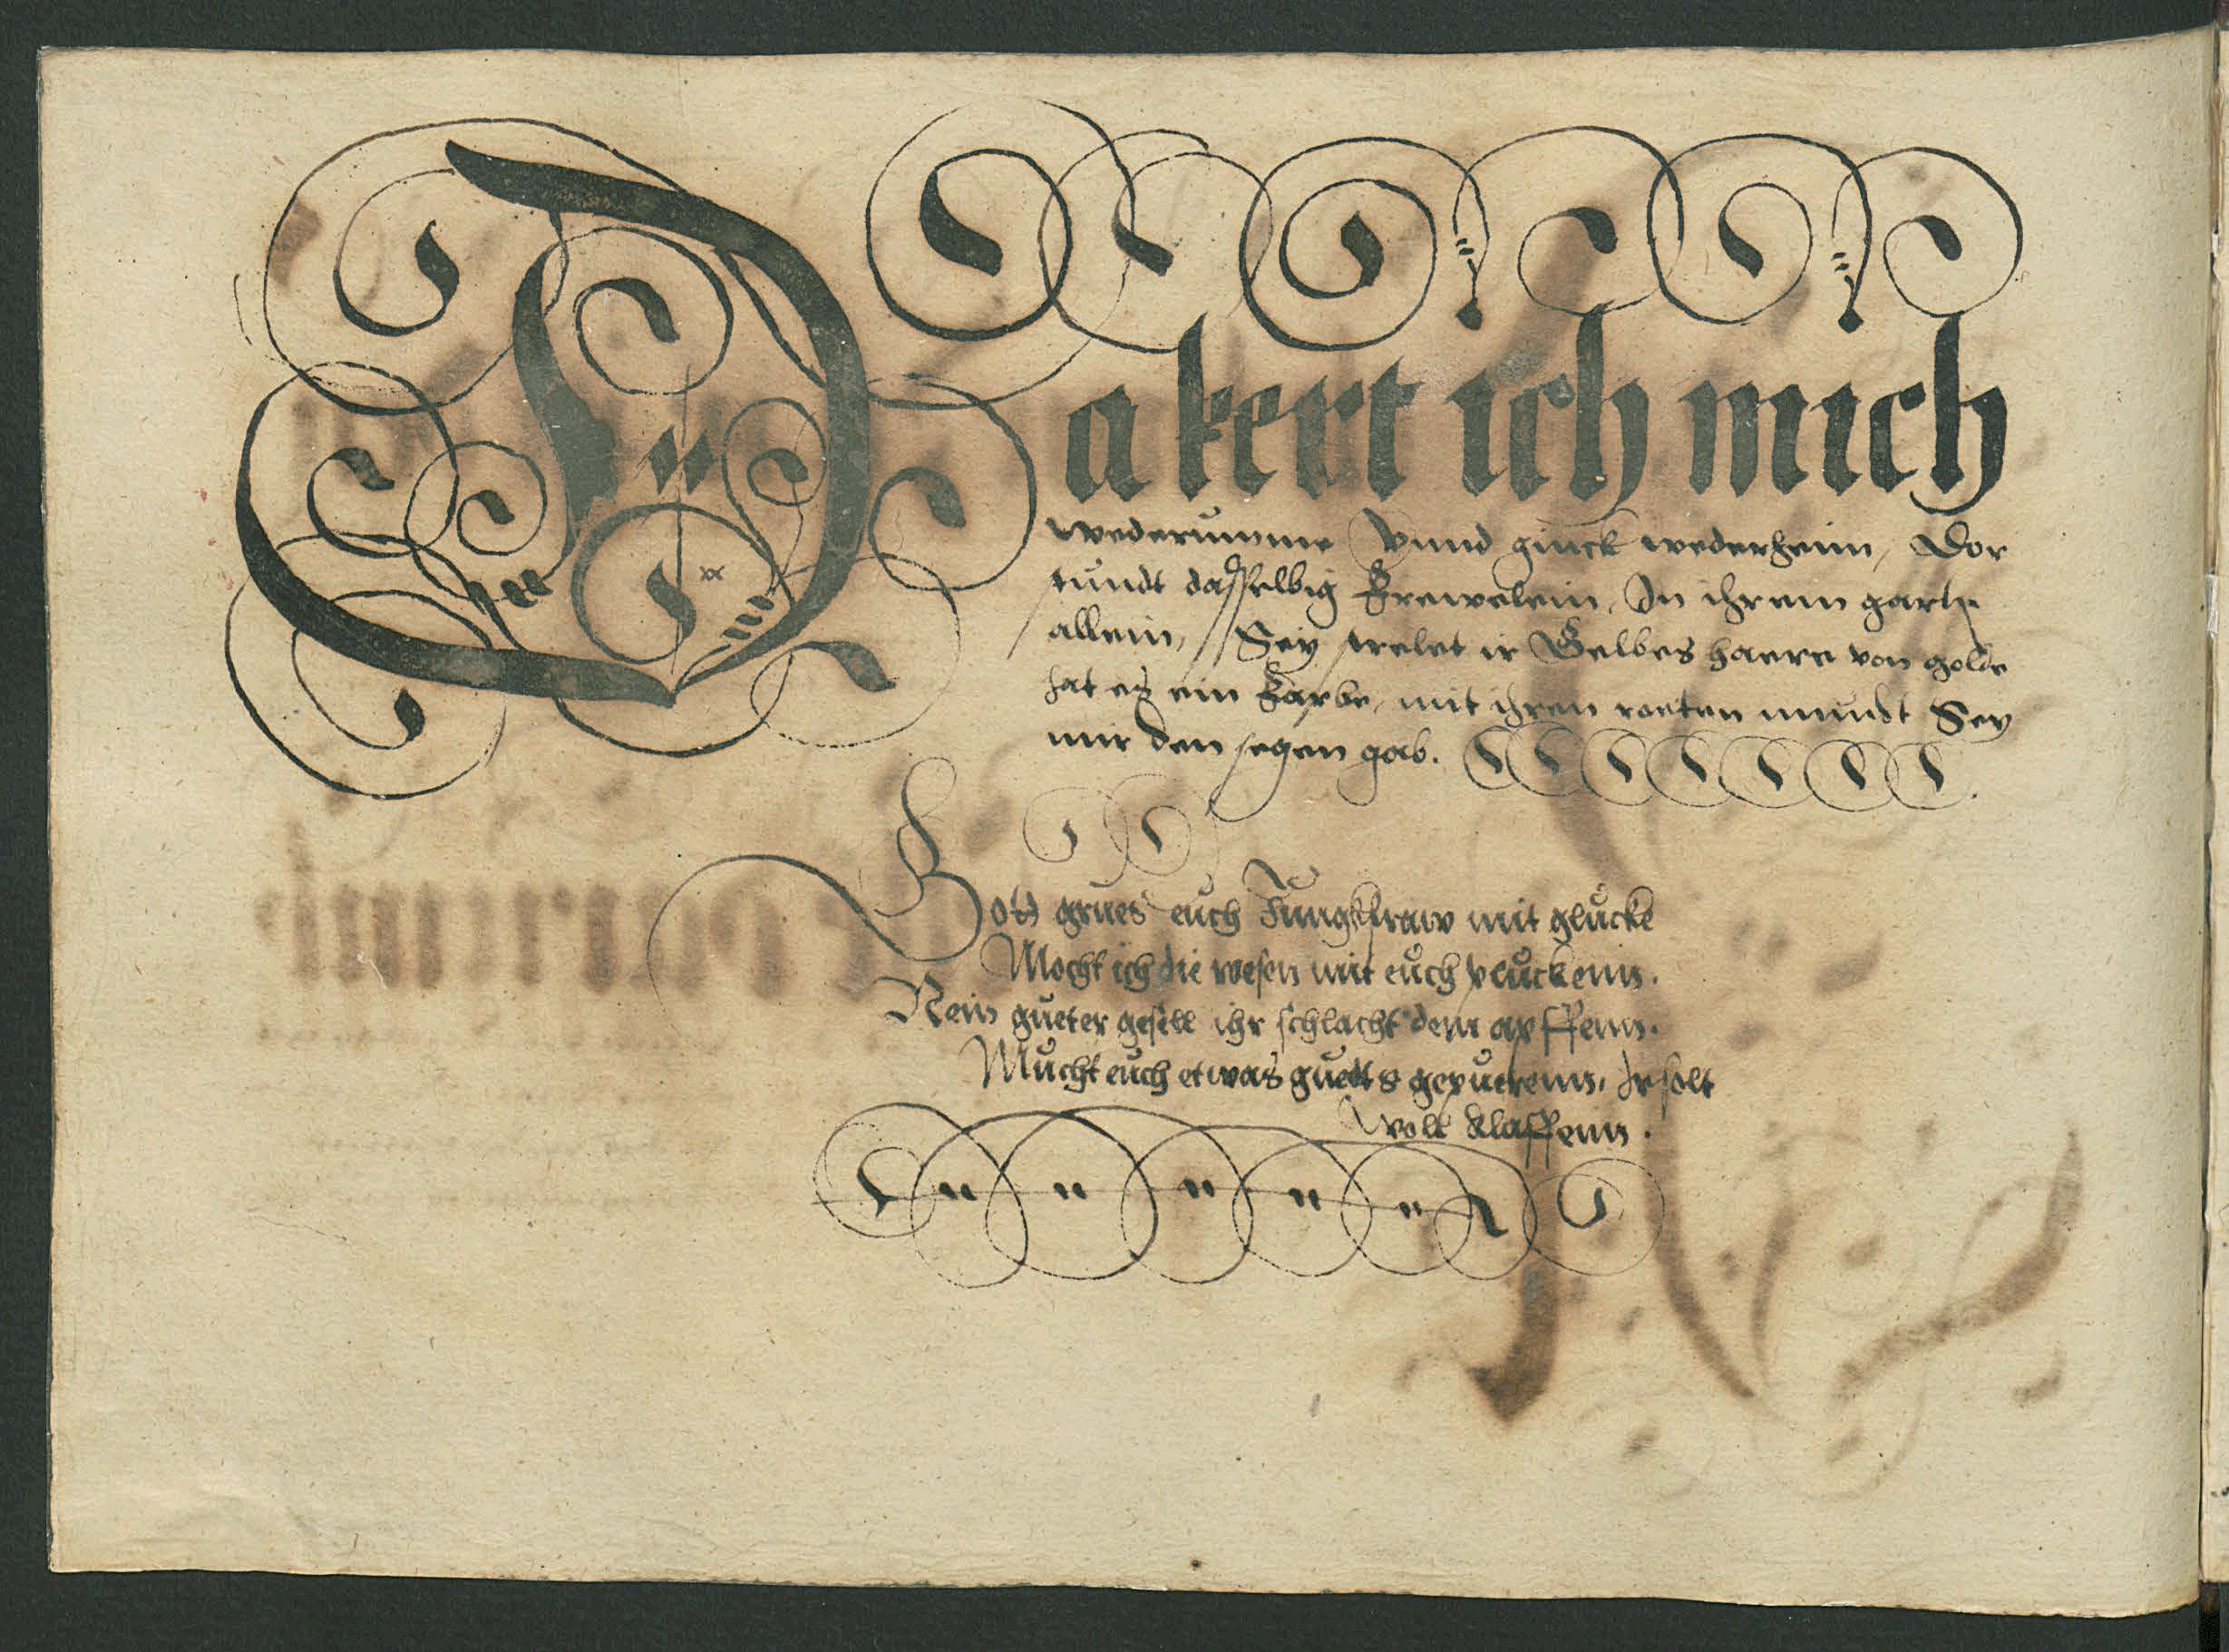 Da kert ich mich
wederumme Vnnd ginck wederheim, Dor
stundt dasselbig Frewelein, In ihrem garten
allein, Sey strelet ir Gelbes haere von golde
hat es ein Farbe, mit ihren roeten mundt Sey
mir den segen gab.
Gott grues euch Jungkfraw mit glucke
Mocht ich die wesen mit euch pluckenn.
Nein gueter gesell ihr schlacht dem apffenn.
Mucht euch etwas guetts gepuerenn, Ir solt
woll klaffenn.